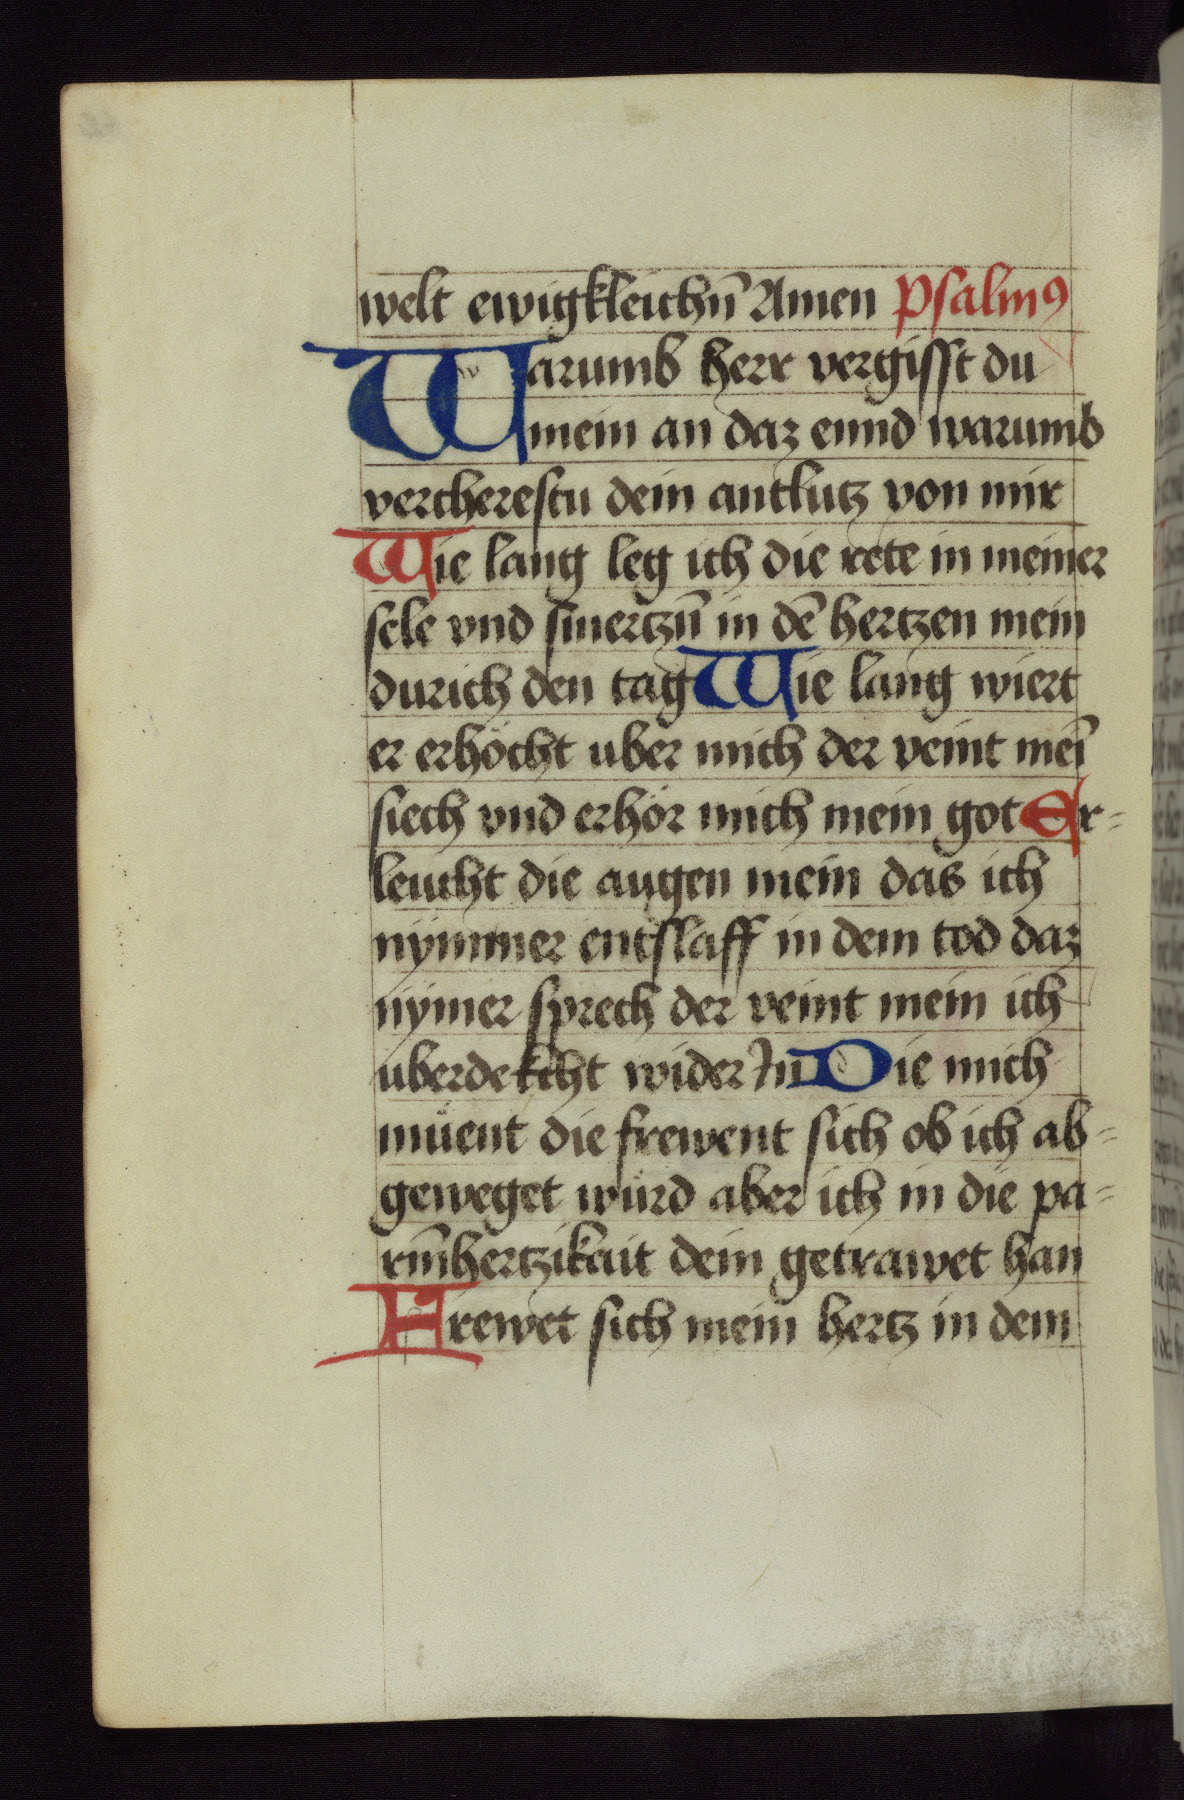 welt ewigkleichn̄ Amen Psalmꝯ
Warumb herr vergisst du
mein an daz ennd warumb
vercherestu dein antlutz von mir
Wie lang leg ich die rete in meiner
sele vnd smertzn̄ in dē hertzen mein
durich den tag Wie lang wiert
er erhöcht uber mich der veint mein̄
siech vnd erhör mich mein got Er-
leucht die augen mein das ich
nymmer entslaff in dem tod daz
nymer sprech der veint mein ich
uberdekcht wider In Die mich
müent die frewent sich ob ich ab-
geweget würd aber ich in die pa-
rm̄hertzikait dein getrawet han
Frewet sich mein hertz in dem